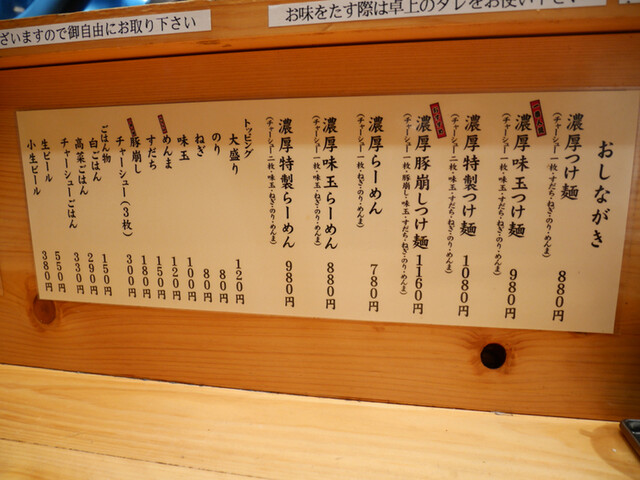 ざいますので御自由にお取り下さい
お味をたす際は卓上のタレをお使い下さい
おしながき
濃厚つけ麺 880円
(チャーシュー一枚・すだち・ねぎ・のり・めんま)
濃厚味玉つけ麺 980円
(チャーシュー一枚・味玉・すだち・ねぎ・のり・めんま)
濃厚特製つけ麺 1080円
(チャーシュー二枚・味玉・すだち・ねぎ・のり・めんま)
濃厚豚崩しつけ麺 1160円
(チャーシュー一枚・豚崩し・味玉・すだち・ねぎ・のり・めんま)
濃厚らーめん 780円
(チャーシュー一枚・ねぎ・のり・めんま)
濃厚味玉らーめん 880円
(チャーシュー一枚・味玉・ねぎ・のり・めんま)
濃厚特製らーめん 980円
(チャーシュー二枚・味玉・ねぎ・のり・めんま)
トッピング
大盛り 120円
のり 80円
ねぎ 80円
味玉 100円
めんま 120円
すだち 150円
豚崩し 180円
チャーシュー(3枚) 300円
ごはん物
白ごはん 150円
高菜ごはん 290円
チャーシューごはん 330円
生ビール 550円
小生ビール 380円